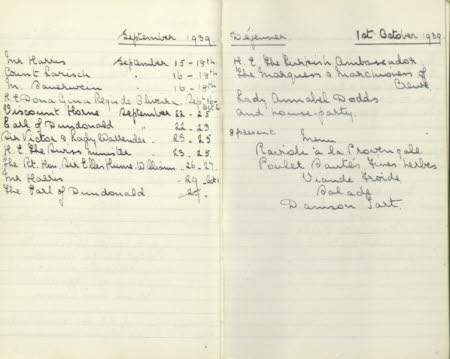 September 1939.
Mr Harris September 15-18th
Count Larisch 16-18th
M. Bauerwein " 16-18th
H.E Dona Gina Regis de Oliveira. Sept 16-
Viscount Horne September 22-25
Earl of Dundonald " 22-23
Sir Victor & Lady Warrender. 23-25
H.E The Swiss minister 23-25.
The Rt. Hon Sir Ellis Hume-Williams 26-27
Mr Harris 29-
The Earl of Dundonald 29.
Déjeuner 1st October 1939.
H.E. The Turkish Ambassador
The Marquess & Marchioness of
Crewe
Lady Annabel Dodds
and house-party.
8 present Menu
Ravioli à la Provençale
Poulet Sautés Fines herbes
Viande Froide
Salade
Damson Tart.